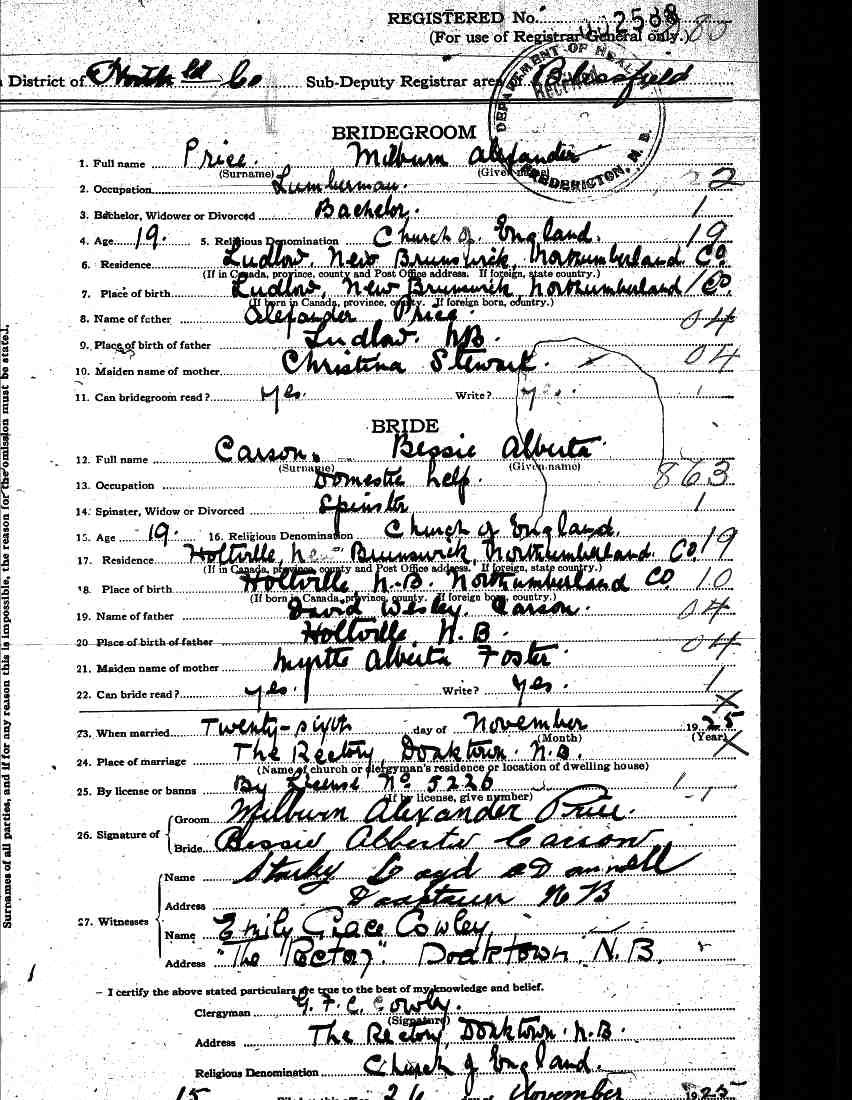 REGISTERED No. 2588
(For use of Registrar General only.)
District of North'ld Co Sub-Deputy Registrar area of Blissfield
DEPARTMENT OF HEALTH RECEIVED FREDERICTON, N. B.
BRIDEGROOM
1. Full name Price. Milburn Alexander 2
(Surname) (Given name)
2. Occupation Lumberman.
3. Bachelor, Widower or Divorced Bachelor. 1
4. Age 19. 5. Religious Denomination Church of England. 19
6. Residence Ludlow, New Brunswick, Northumberland Co
(If in Canada, province, county and Post Office address. If foreign, state country.)
7. Place of birth Ludlow, New Brunswick, Northumberland Co.
(If born in Canada, province, county. If foreign born, country.)
8. Name of father Alexander Price. 04
9. Place of birth of father Ludlow. NB.
10. Maiden name of mother Christina Stewart. 04
11. Can bridegroom read? Yes. Write? Yes.
BRIDE
12. Full name Carson, Bessie Alberta
(Surname) (Given name)
13. Occupation Domestic help. 863
14. Spinster, Widow or Divorced Spinster 1
15. Age 19. 16. Religious Denomination Church of England. 19
17. Residence Holtville, New Brunswick, Northumberland Co.
(If in Canada, province, county and Post Office address. If foreign, state country.)
18. Place of birth Holtville N.B. Northumberland Co 10
(If born in Canada, province, county. If foreign born, country.)
19. Name of father David Wesley Carson. 04
20 Place of birth of father Holtville, N.B. 04
21. Maiden name of mother Myrtte Alberta Foster
22. Can bride read? Yes. Write? Yes. 1
23. When married Twenty-sixth day of November 1925
(Month) (Year)
24. Place of marriage The Rectory, Doaktown. N.B.
(Name of church or clergyman's residence or location of dwelling house)
25. By license or banns By License No. 5226
(If by license, give number)
26. Signature of Groom Milburn Alexander Price.
Bride Bessie Alberta Carson
27. Witnesses Name
Address Doaktown N B
Name Emily Grace Cowley
Address "The Rectory" Doaktown, N.B.
I certify the above stated particulars are true to the best of my knowledge and belief.
Clergyman G. F. C. Cowley.
(Signature)
Address The Rectory, Doaktown. N.B.
Religious Denomination Church of England.
15 26 November 1925
Surnames of all parties, and if for any reason this is impossible, the reason for the omission must be stated.